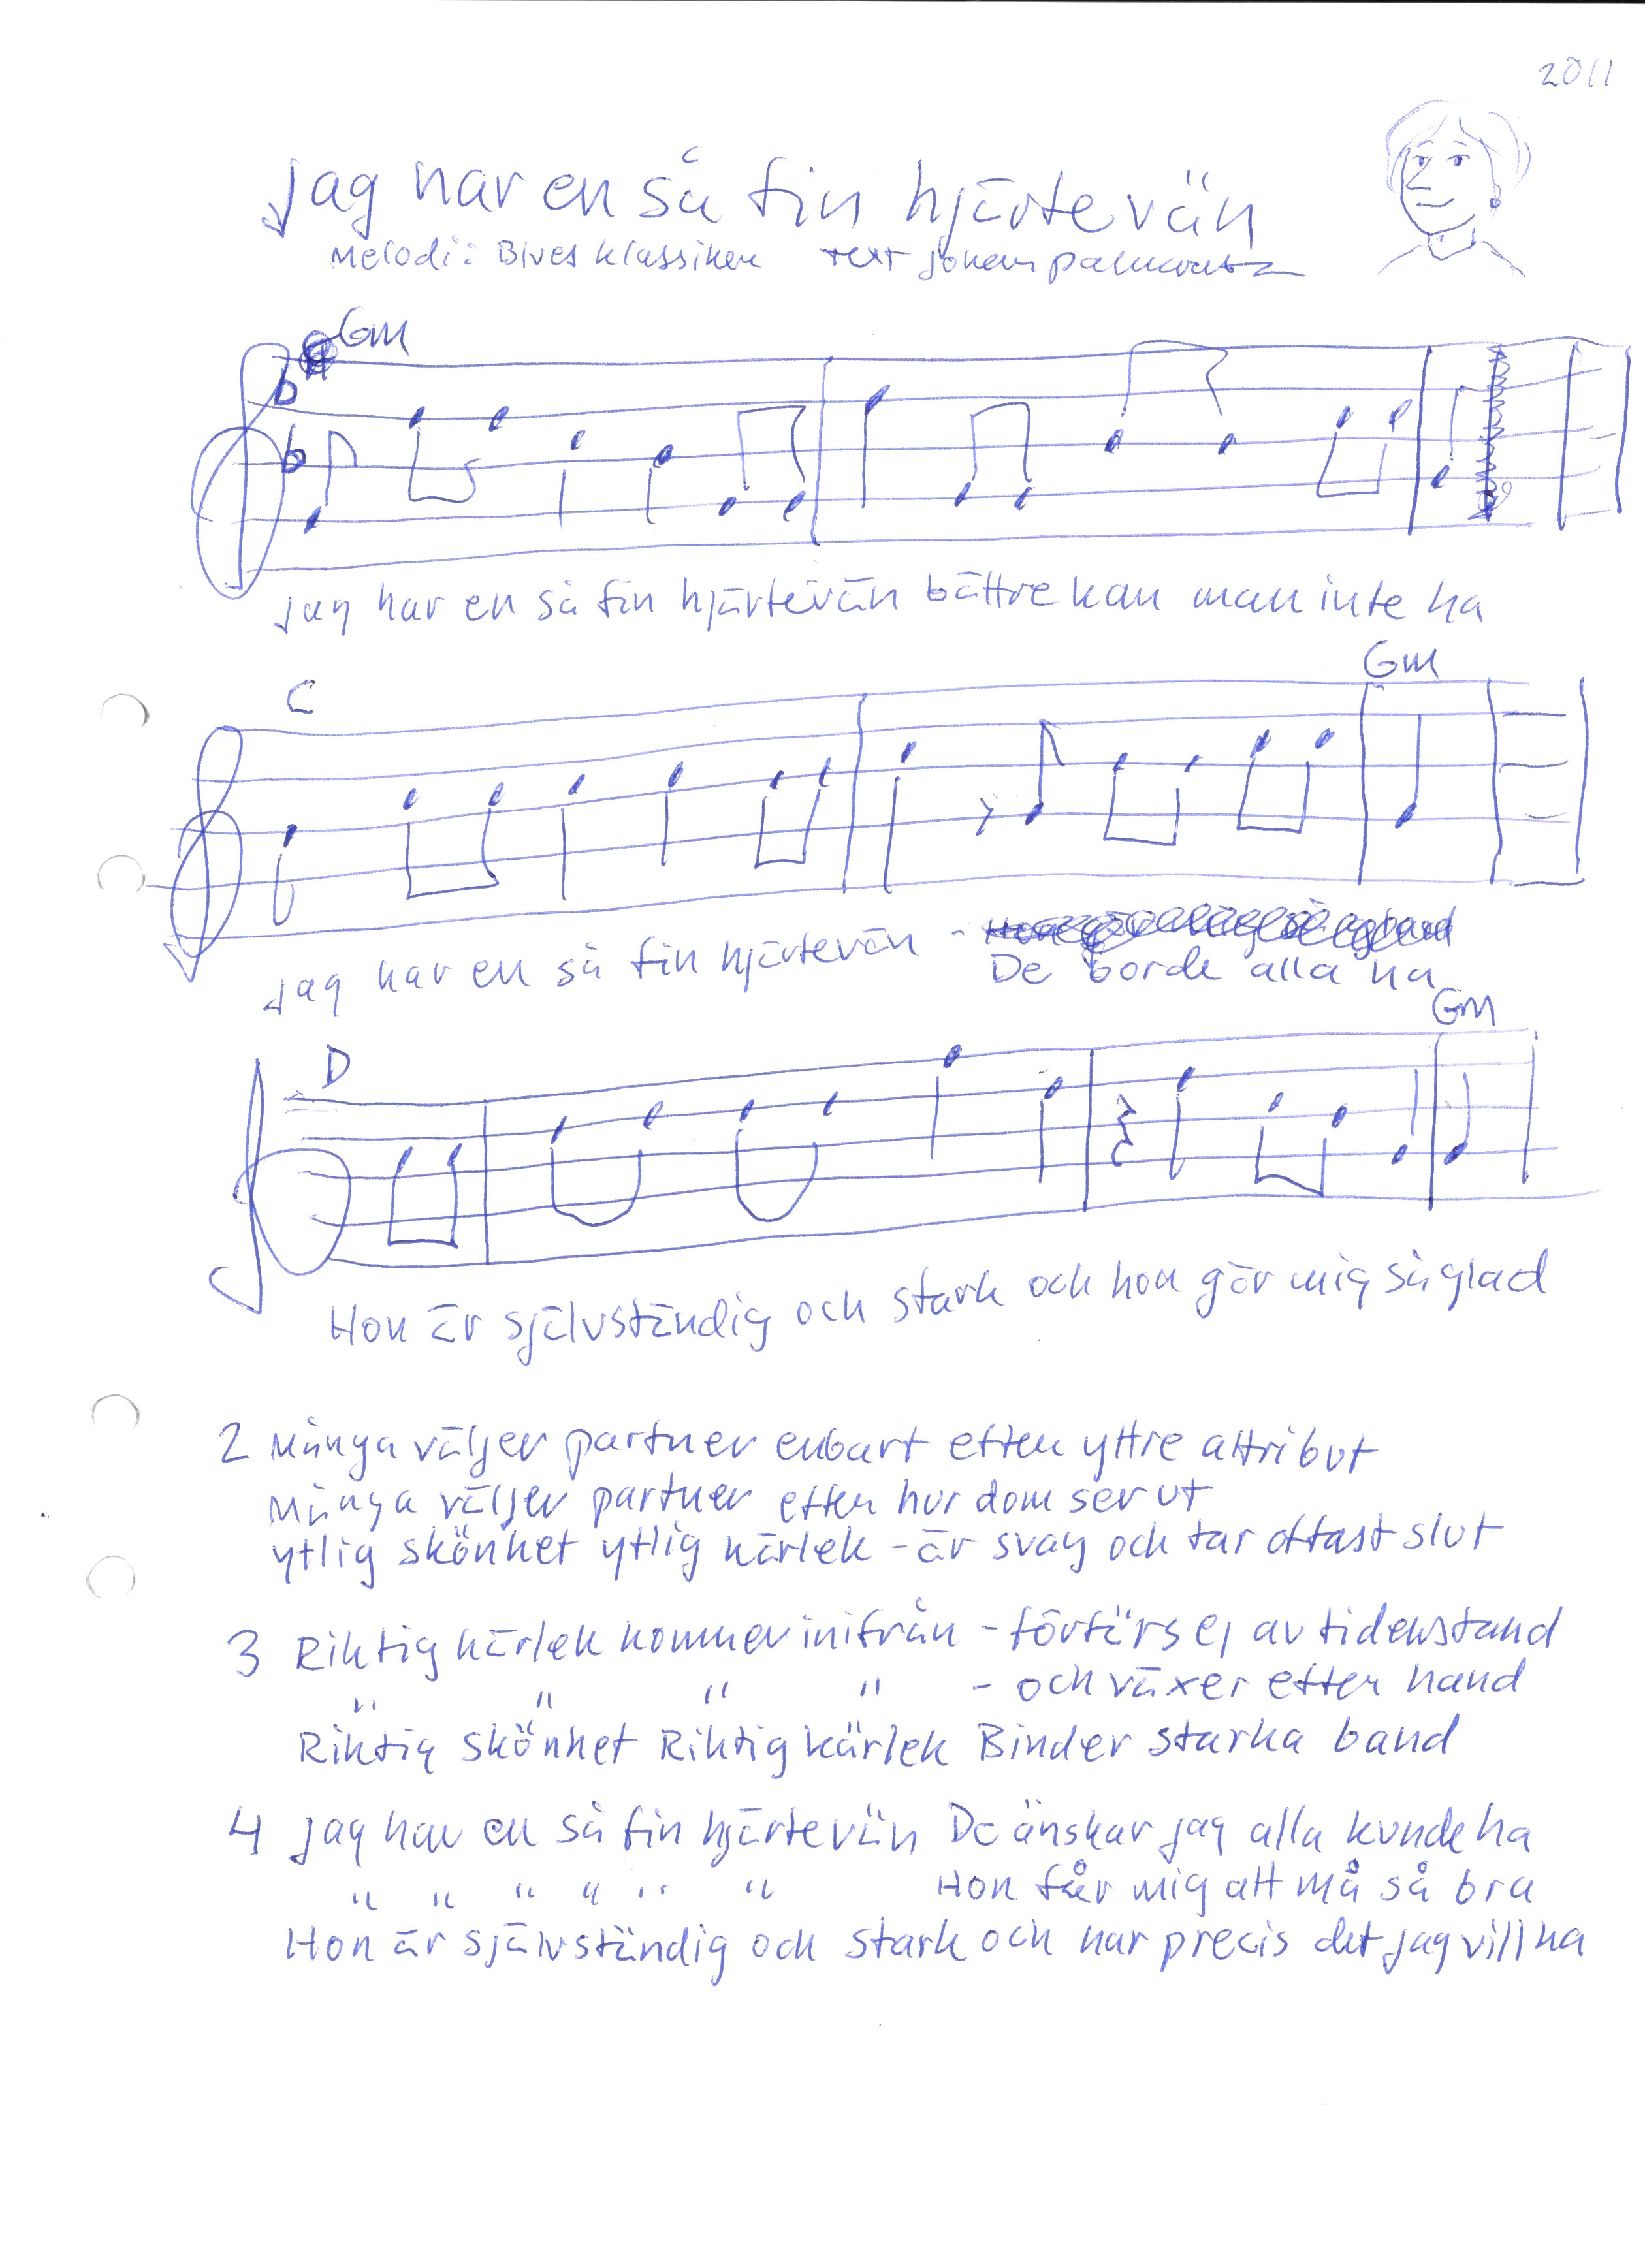 2011
Jag har en så fin hjärtevän
Melodi: Blues klassiker text
Gm
b
b
Jag har en så fin hjärtevän bättre kan man inte ha
C
Gm
Jag har en så fin hjärtevän -
De borde alla ha
Gm
D
Hon är självständig och stark och hon gör mig så glad
2 Många väljer partner enbart efter yttre attribut
Många väljer partner efter hur dom ser ut
ytlig skönhet ytlig kärlek - är svag och tar oftast slut
3 Riktig kärlek kommer inifrån - förtärs ej av tidenstand
" " " " - och växer efter hand
Riktig skönhet Riktig kärlek Binder starka band
4 Jag har en så fin hjärtevän De önskar jag alla kunde ha
" " " " " " Hon får mig att må så bra
Hon är självständig och stark och har precis det jag vill ha